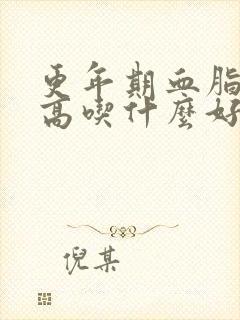 更年期血脂
高喫什麼好
倪某